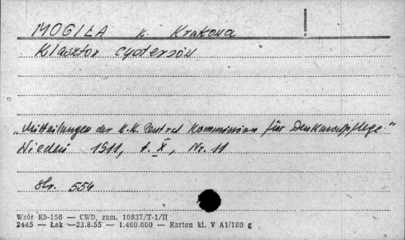 MOGIŁA k. Krakowa
Klasztor cystersów
"Mitteilungen der K.K. Central Kommission für Denkmalpflege"
Wiedeń 1911, t. X, Nr. 11
str. 554
Wzór Kb-156 — CWD, zam. 10837/T-1/II
2445 — Łak — 23.8.55 — 1.400.000 — Karton kl. V A1/180 g